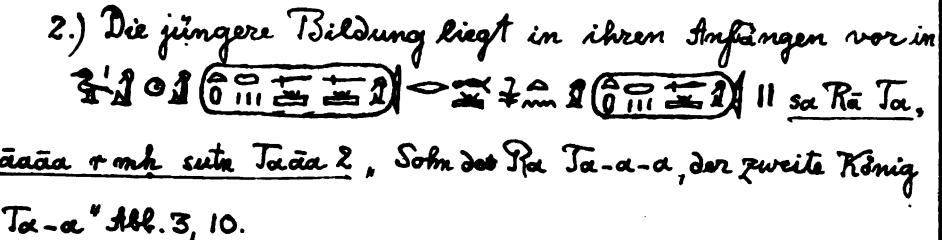 2.) Die jüngere Bildung liegt in ihren Anfängen vor in
|| sa Rā Ta,
āaāa r mḥ sutn Taāa 2 „ Sohn des Ra Ta-a-a, der zweite König
Ta-a" Abb. 3, 10.